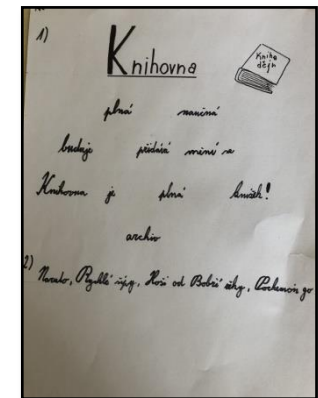 1)
Knihovna
Kniha
dějin
plná naučná
buduje přidává mění se
Knihovna je plná knížek!
archiv
2) Naruto, Rychlé šípy, Hoši od Bobří řeky, Pockemon go